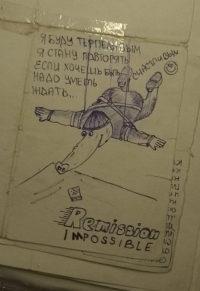 Я БУДУ ТЕРПЕЛИВЫМ
Я СТАНУ ПОВТОРЯТЬ
ЕСЛИ ХОЧЕШЬ БЫТЬ СЧАСТЛИВЫМ
НАДО УМЕТЬ
ЖДАТЬ...
Remission
IMPOSSIBLE